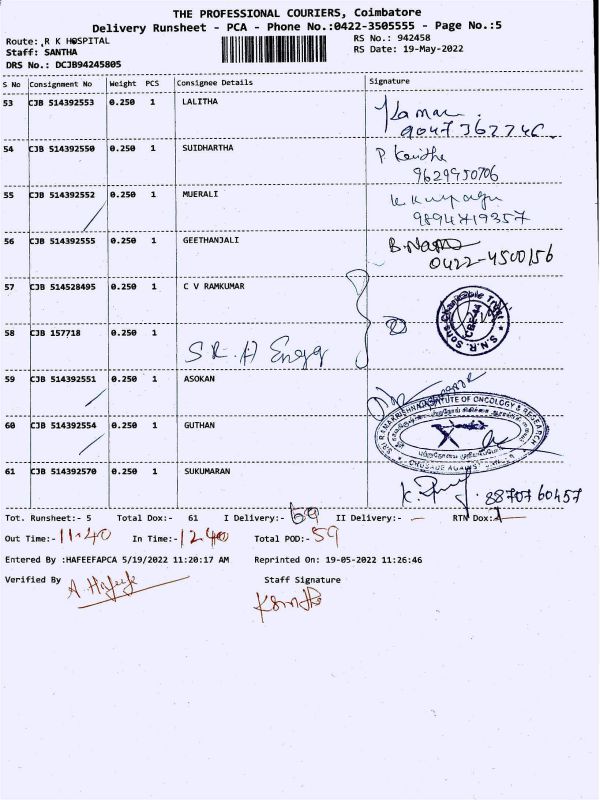 THE PROFESSIONAL COURIERS, Coimbatore
Delivery Runsheet - PCA - Phone No.:0422-3505555 - Page No.:5
Route: R K HOSPITAL
RS No.: 942458
Staff: SANTHA
RS Date: 19-May-2022
DRS No.: DCJB94245805
S No Consignment No Weight PCS Consignee Details Signature
53 CJB 514392553 0.250 1 LALITHA
54 CJB 514392550 0.250 1 SUIDHARTHA
9629950706
55 CJB 514392552 0.250 1 MUERALI
9894719357
56 CJB 514392555 0.250 1 GEETHANJALI
0422-4500156
57 CJB 514528495 0.250 1 C V RAMKUMAR
S.N.R. Sons Charitable Trust
58 CJB 157718 0.250 1
59 CJB 514392551 0.250 1 ASOKAN
SRI RAMAKRISHNA INSTITUTE OF ONCOLOGY & RESEARCH
60 CJB 514392554 0.250 1 GUTHAN
61 CJB 514392570 0.250 1 SUKUMARAN
88707 60457
Tot. Runsheet:- 5 Total Dox:- 61 I Delivery:- II Delivery:- - RTN Dox:-
Out Time:- 11.40 In Time:- 12.40 Total POD:- 59
Entered By :HAFEEFAPCA 5/19/2022 11:20:17 AM Reprinted On: 19-05-2022 11:26:46
Verified By A. Hafeefa Staff Signature